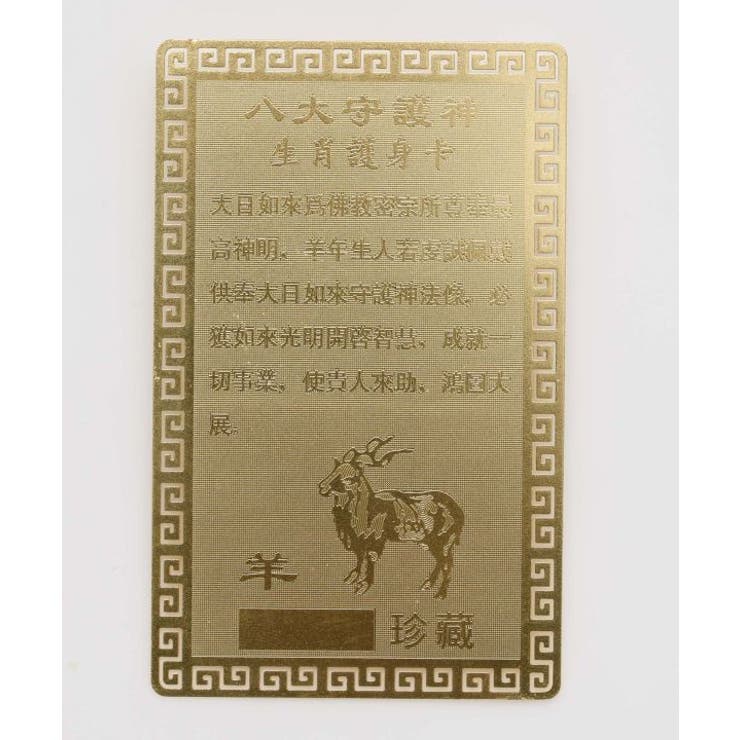 八大守護神
生肖護身卡
大日如來爲佛教密宗所尊奉最
高神明、羊年生人若虔誠佩戴
供奉大日如來守護神法像，必
獲如來光明開啓智慧，成就一
切事業，使貴人來助，鴻圖大
展。
羊
珍藏